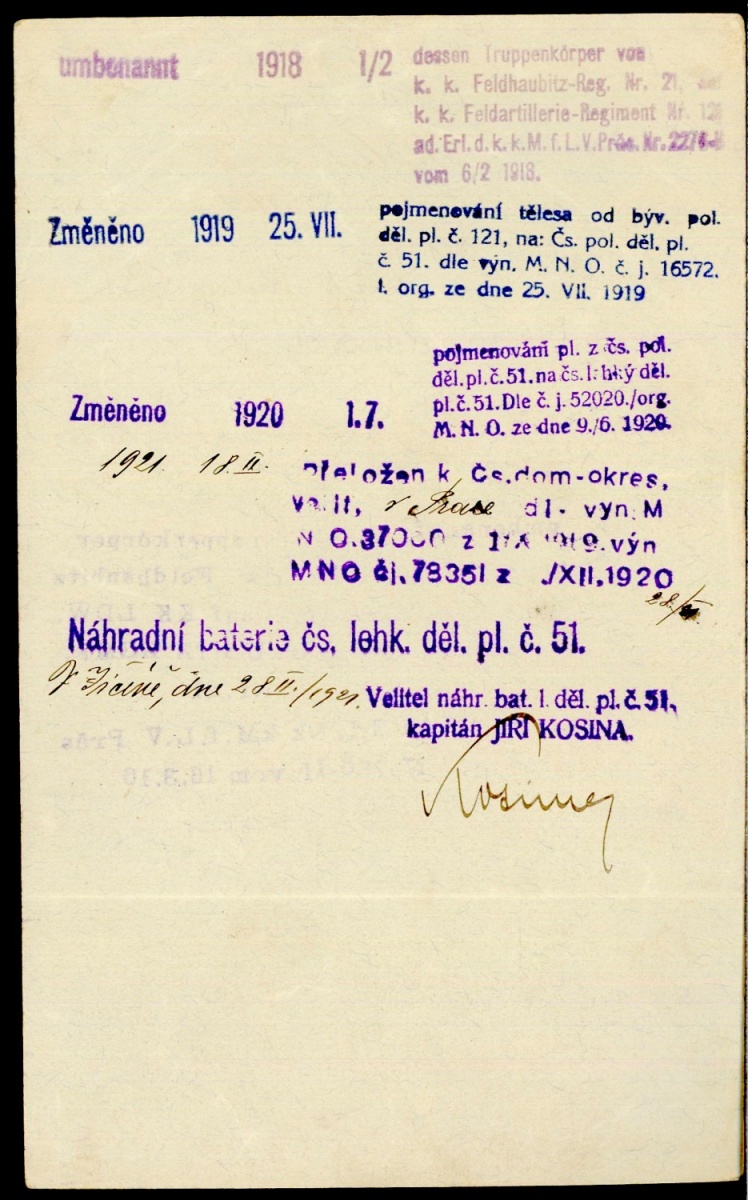 umbenannt 1918 1/2 dessen Truppenkörper von
k. k. Feldhaubitz-Reg. Nr. 21,
k. k. Feldartillerie-Regiment Nr.
ad. Erl. d. k. k. M. f. L. V. Präs. Nr.
vom 6/2 1918.
Změněno 1919 25. VII. pojmenování tělesa od býv. pol.
děl. pl. č. 121, na: Čs. pol. děl. pl.
č. 51. dle výn. M. N. O. č. j. 16572.
I. org. ze dne 25. VII. 1919
Změněno 1920 1.7. pojmenování pl. z čs. pol.
děl. pl. č. 51. na čs. lehký děl.
pl. č. 51. Dle č. j. 52020./org.
M. N. O. ze dne 9./6. 1920.
1921 18.II. Přeložen k Čs. dom-okres,
velit, v Praze dl- výn M
N O.37000 z 1919.výn
MNO čj.78351 z /XII.1920
Náhradní baterie čs. lehk. děl. pl. č. 51.
V Jičíně, dne 28 II./1921. Velitel náhr. bat. l. děl. pl. č. 51,
kapitán JIŘÍ KOSINA.
Kosina